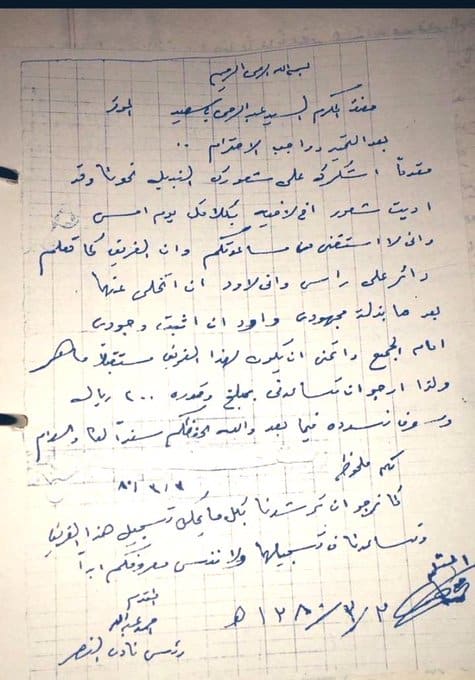 بسم الله الرحمن الرحيم
حضرة المكرم السيد عبد الرحمن بن سعيد الموقر
بعد التحية وواجب الاحترام ..
مقدماً اشكرك على شعورك النبيل نحونا وقد
اديت شعور الاخ لاخيه بكلامك يوم امس
واني لا استغنى من مساعدتكم وان الفريق كما تعلم
دائر على راسي واني لاود ان اتخلى عنها
بعد ما بذلة مجهودي واود ان اثبت وجودي
امام الجميع واتمنى ان يكون لهذا الفريق مستقبلاً ماهر
ولذا ارجو ان تساعدني بمبلغ وقدره ٢٠٠ ريال
وسوف نسدده فيما بعد والله يحفظكم سنداً لنا والسلام
٨٠/٣/٢
ملحوظه
كما نرجو ان ترشدنا بكل ما يمكن تسجيل هذا الفريق
وتساعدنا في تسجيلها ولا ننسى معروفكم ابداً
المقدم
احمد عبدالله
رئيس نادي النصر
١٣٨٠/٣/٢ هـ
المستلم